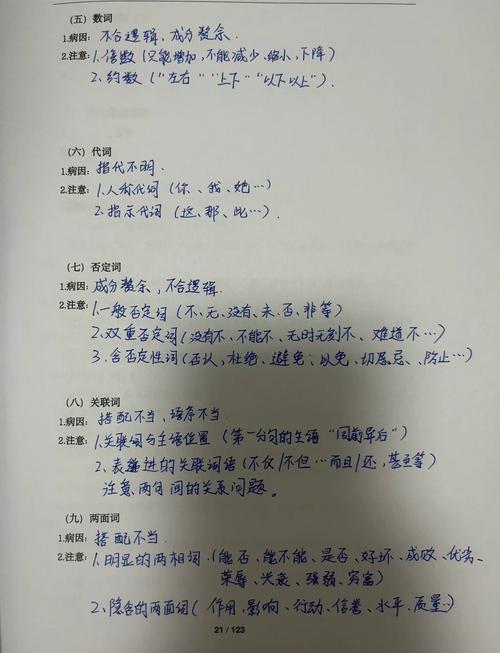 （五）数词
1.病因：不合逻辑，成分赘余.
2.注意：1.倍数（只能增加，不能减少、缩小、下降）
2.约数（“左右”“上下”“以下以上”）.
（六）代词
1.病因：指代不明.
2.注意：1.人称代词（你、我、她…）
2.指示代词（这、那、此…）.
（七）否定词
1.病因：成分赘余，不合逻辑.
2.注意：1.一般否定词（不、无、没有、未、否、非等）
2.双重否定词（没有不、不能不、无时无刻不、难道不…）
3.含否定性词（否认，杜绝、避免、以免、切忌、防止…）
（八）关联词
1.病因：搭配不当，语序不当.
2.注意：1.关联词与主语位置（第一分句的主语“同前异后”）
2.表递进的关联词语（不仅/不但…而且/还，甚至等）
注意两句间的关系问题。
（九）两面词
1.病因：搭配不当.
2.注意：1.明显的两相词.（能否、能不能、是否、好坏、成败、优劣、
荣辱、兴衰、强弱、穷富）
2.隐含的两面词（作用，影响、行动、信誉、水平、质量…）
21 / 123